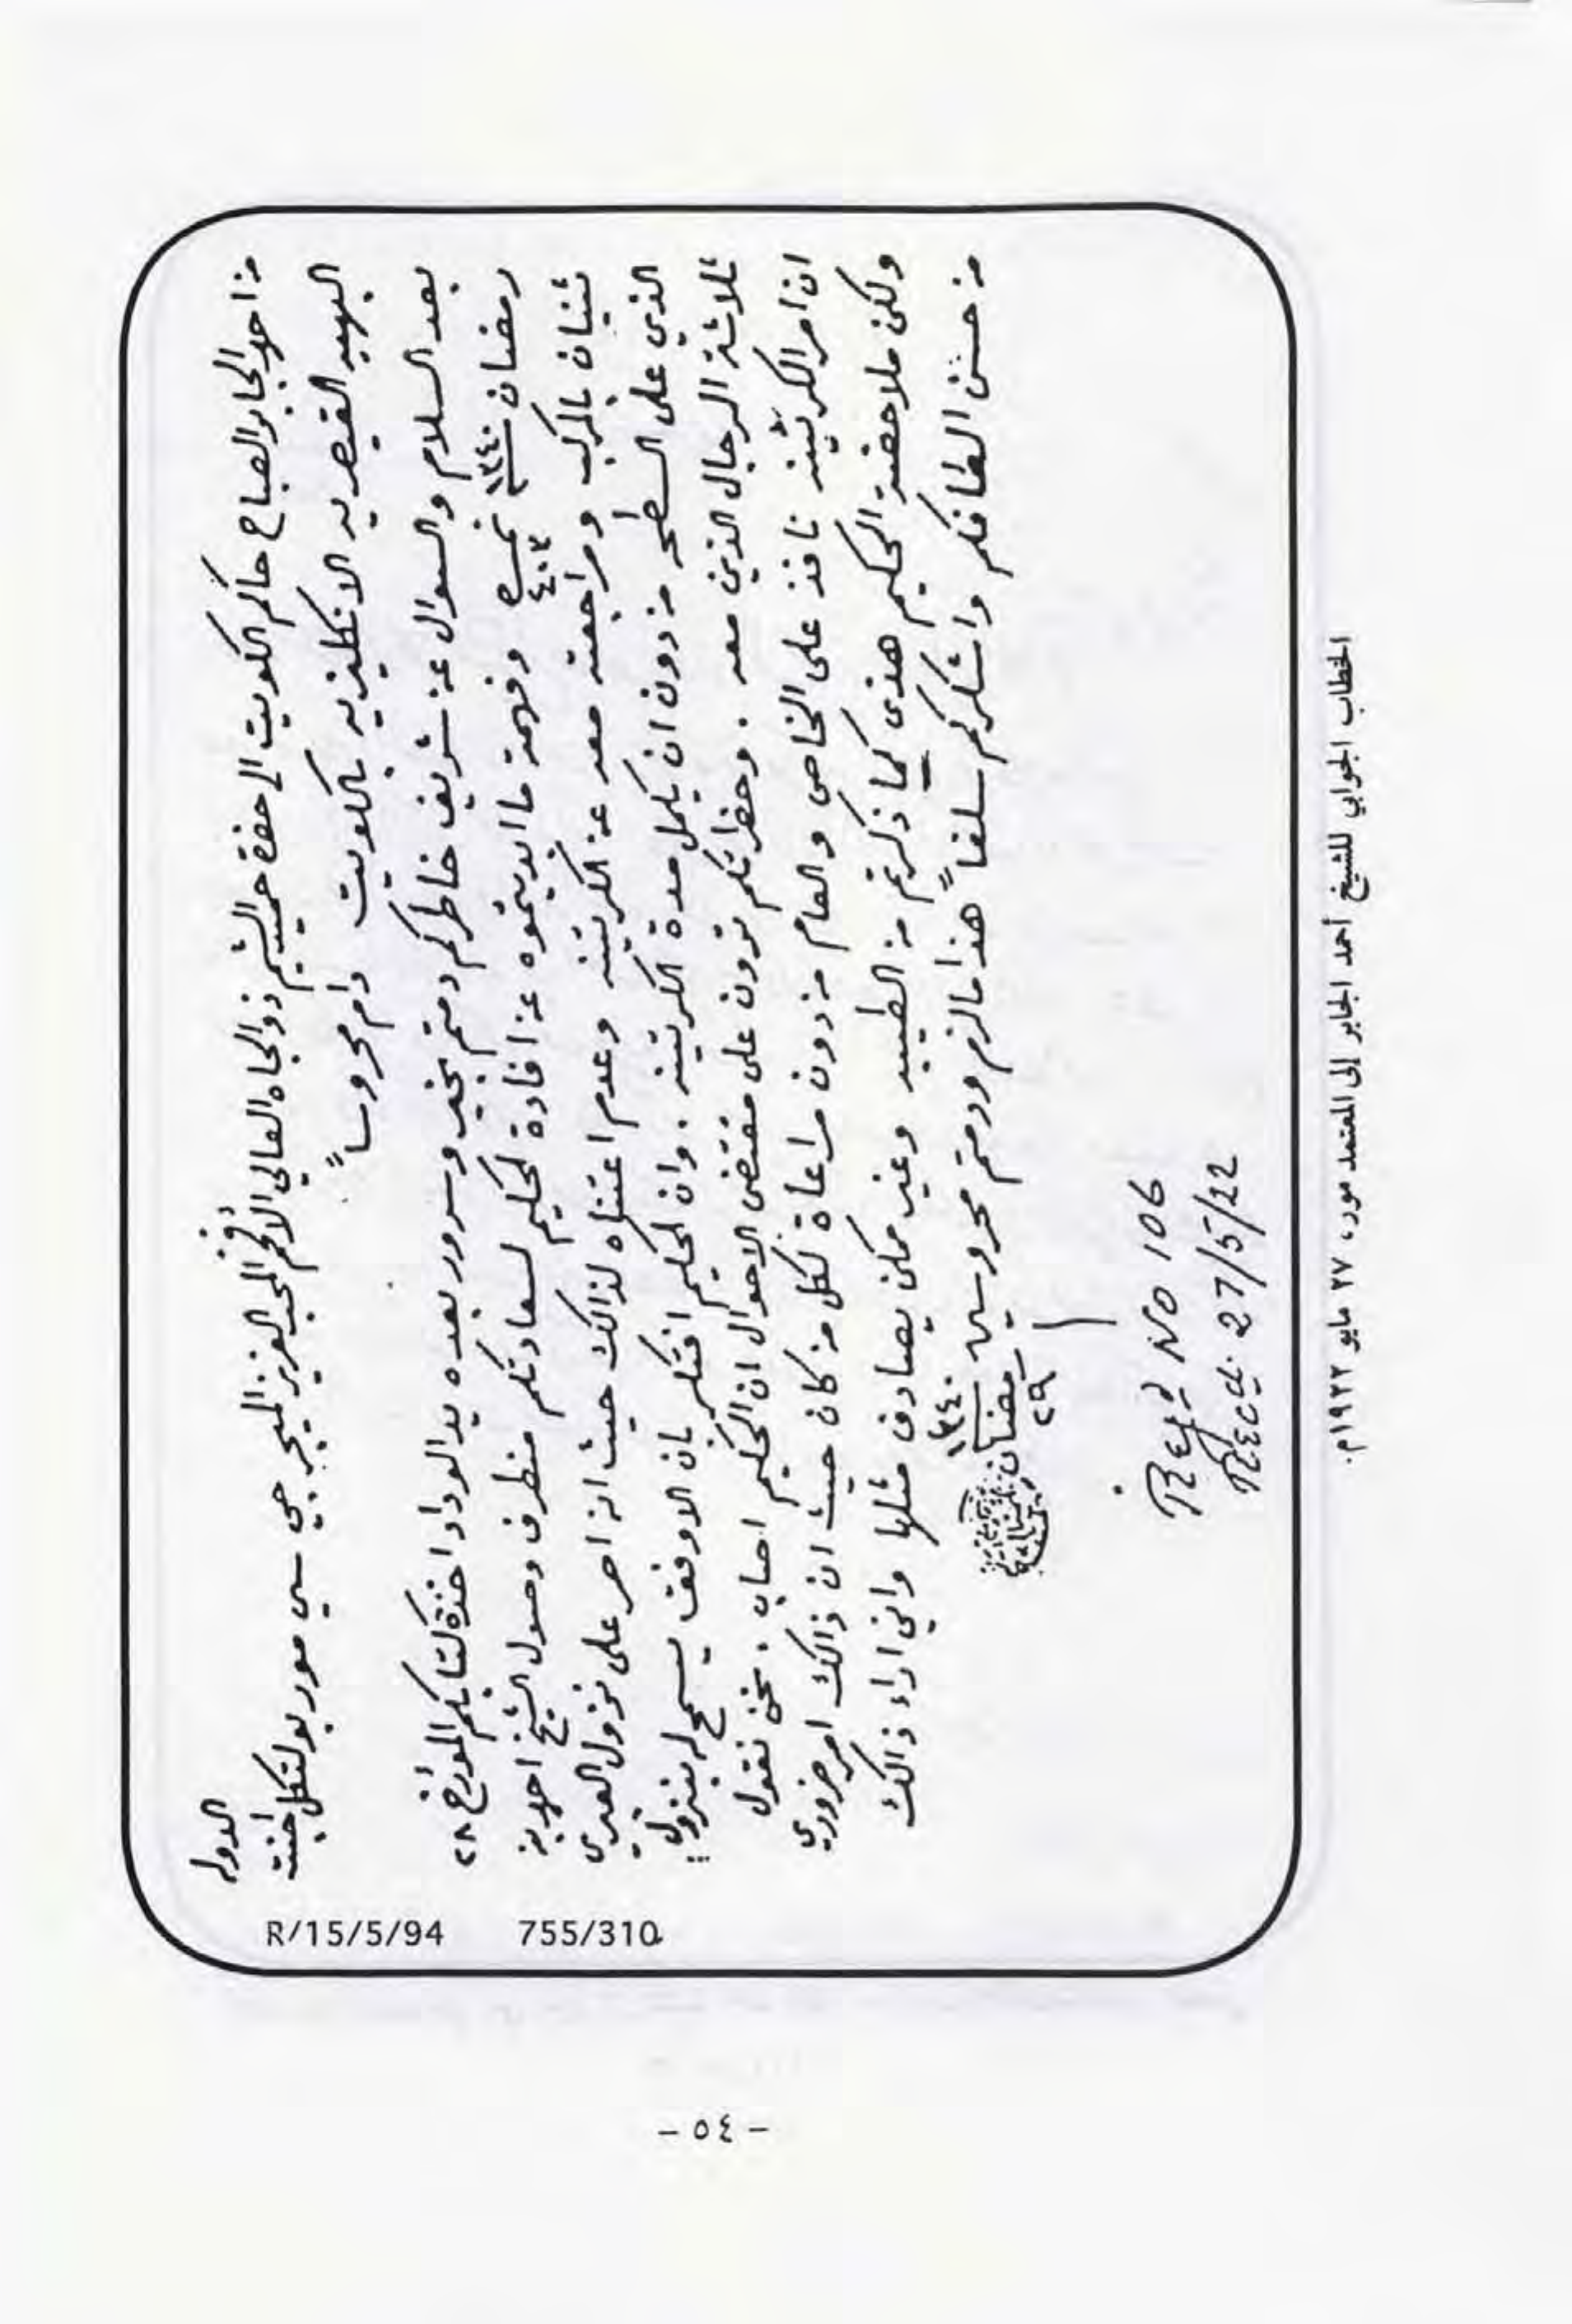 من احمد الجابر الصباح حاكم الكويت الى حضرة حميد الشيم ذو الجاه العالي الافخم المحب العزيز الميجر جي سي مور بولتكل اجنت الدوله
البهيه القيصريه الانكليزيه بالكويت دام محروساً
بعد السلام والسوال عن شريف خاطركم دمتم بخير وسرور بعده يد الوداد اخذة كتابكم المؤرخ ٢٨
رمضان سنه ١٣٤٠ نمره ٤٠٣ وفهمة ما ابديتموه عن افادة الحكيم لسعادتكم منطرف وصول الشيخ احمد بن
ثنيان بالمركب ومراجعته معه عن الكرنتينه وعدم اعتناه لذالك حيث انه اصر على نزول العبرى
الذي على السطحه من دون ان يكمل مدة الكرنتينه . وان الحكيم افتكر بان الاوفق يسمح له بنزول
ثلاثة الرجال الذين معه . وحضراتكم ترون على مقتضى الاحوال ان الحكيم اصاب . نحن نقول
ان امر الكرنتينه نافذ على الخاص والعام من دون مراعاة لكل من كان حيث ان ذالك امر ضروري
ولكن ملاحضة الحكيم هذى كما ذكرتم من الطيب وغير ممكن يصادف مثلها واني اراء ذالك
من حسن الطافكم واشكركم سلفاً هذا مالزم ودمتم محروسين
٢٩ رمضان سنه ١٣٤٠
Reg. No 106
Recd. 27/5/22
R/15/5/94 755/310
الخطاب الجوابي للشيخ أحمد الجابر إلى المعتمد مور، ٢٧ مايو ١٩٢٢م.
- ٥٤ -